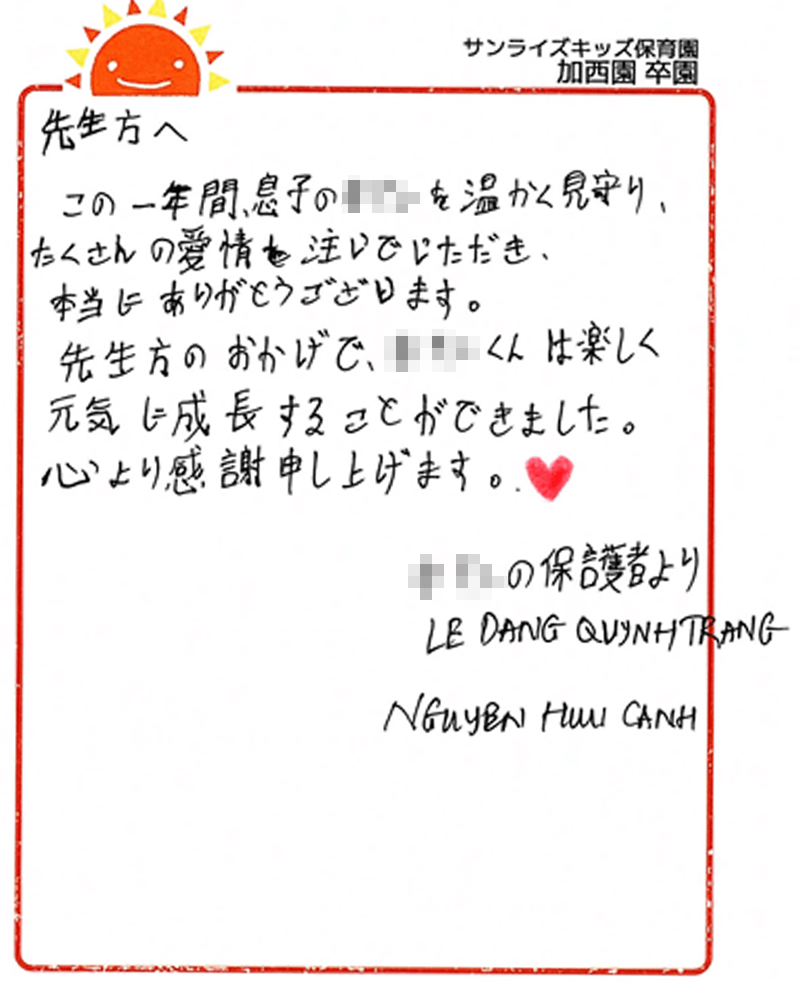 サンライズキッズ保育園
加西園 卒園
先生方へ
この一年間、息子の を温かく見守り、
たくさんの愛情を注いでいただき、
本当にありがとうございます。
先生方のおかげで、 くんは楽しく
元気に成長することができました。
心より感謝申し上げます。
の保護者より
LE DANG QUYNH TRANG
NGUYEN HUU CANH